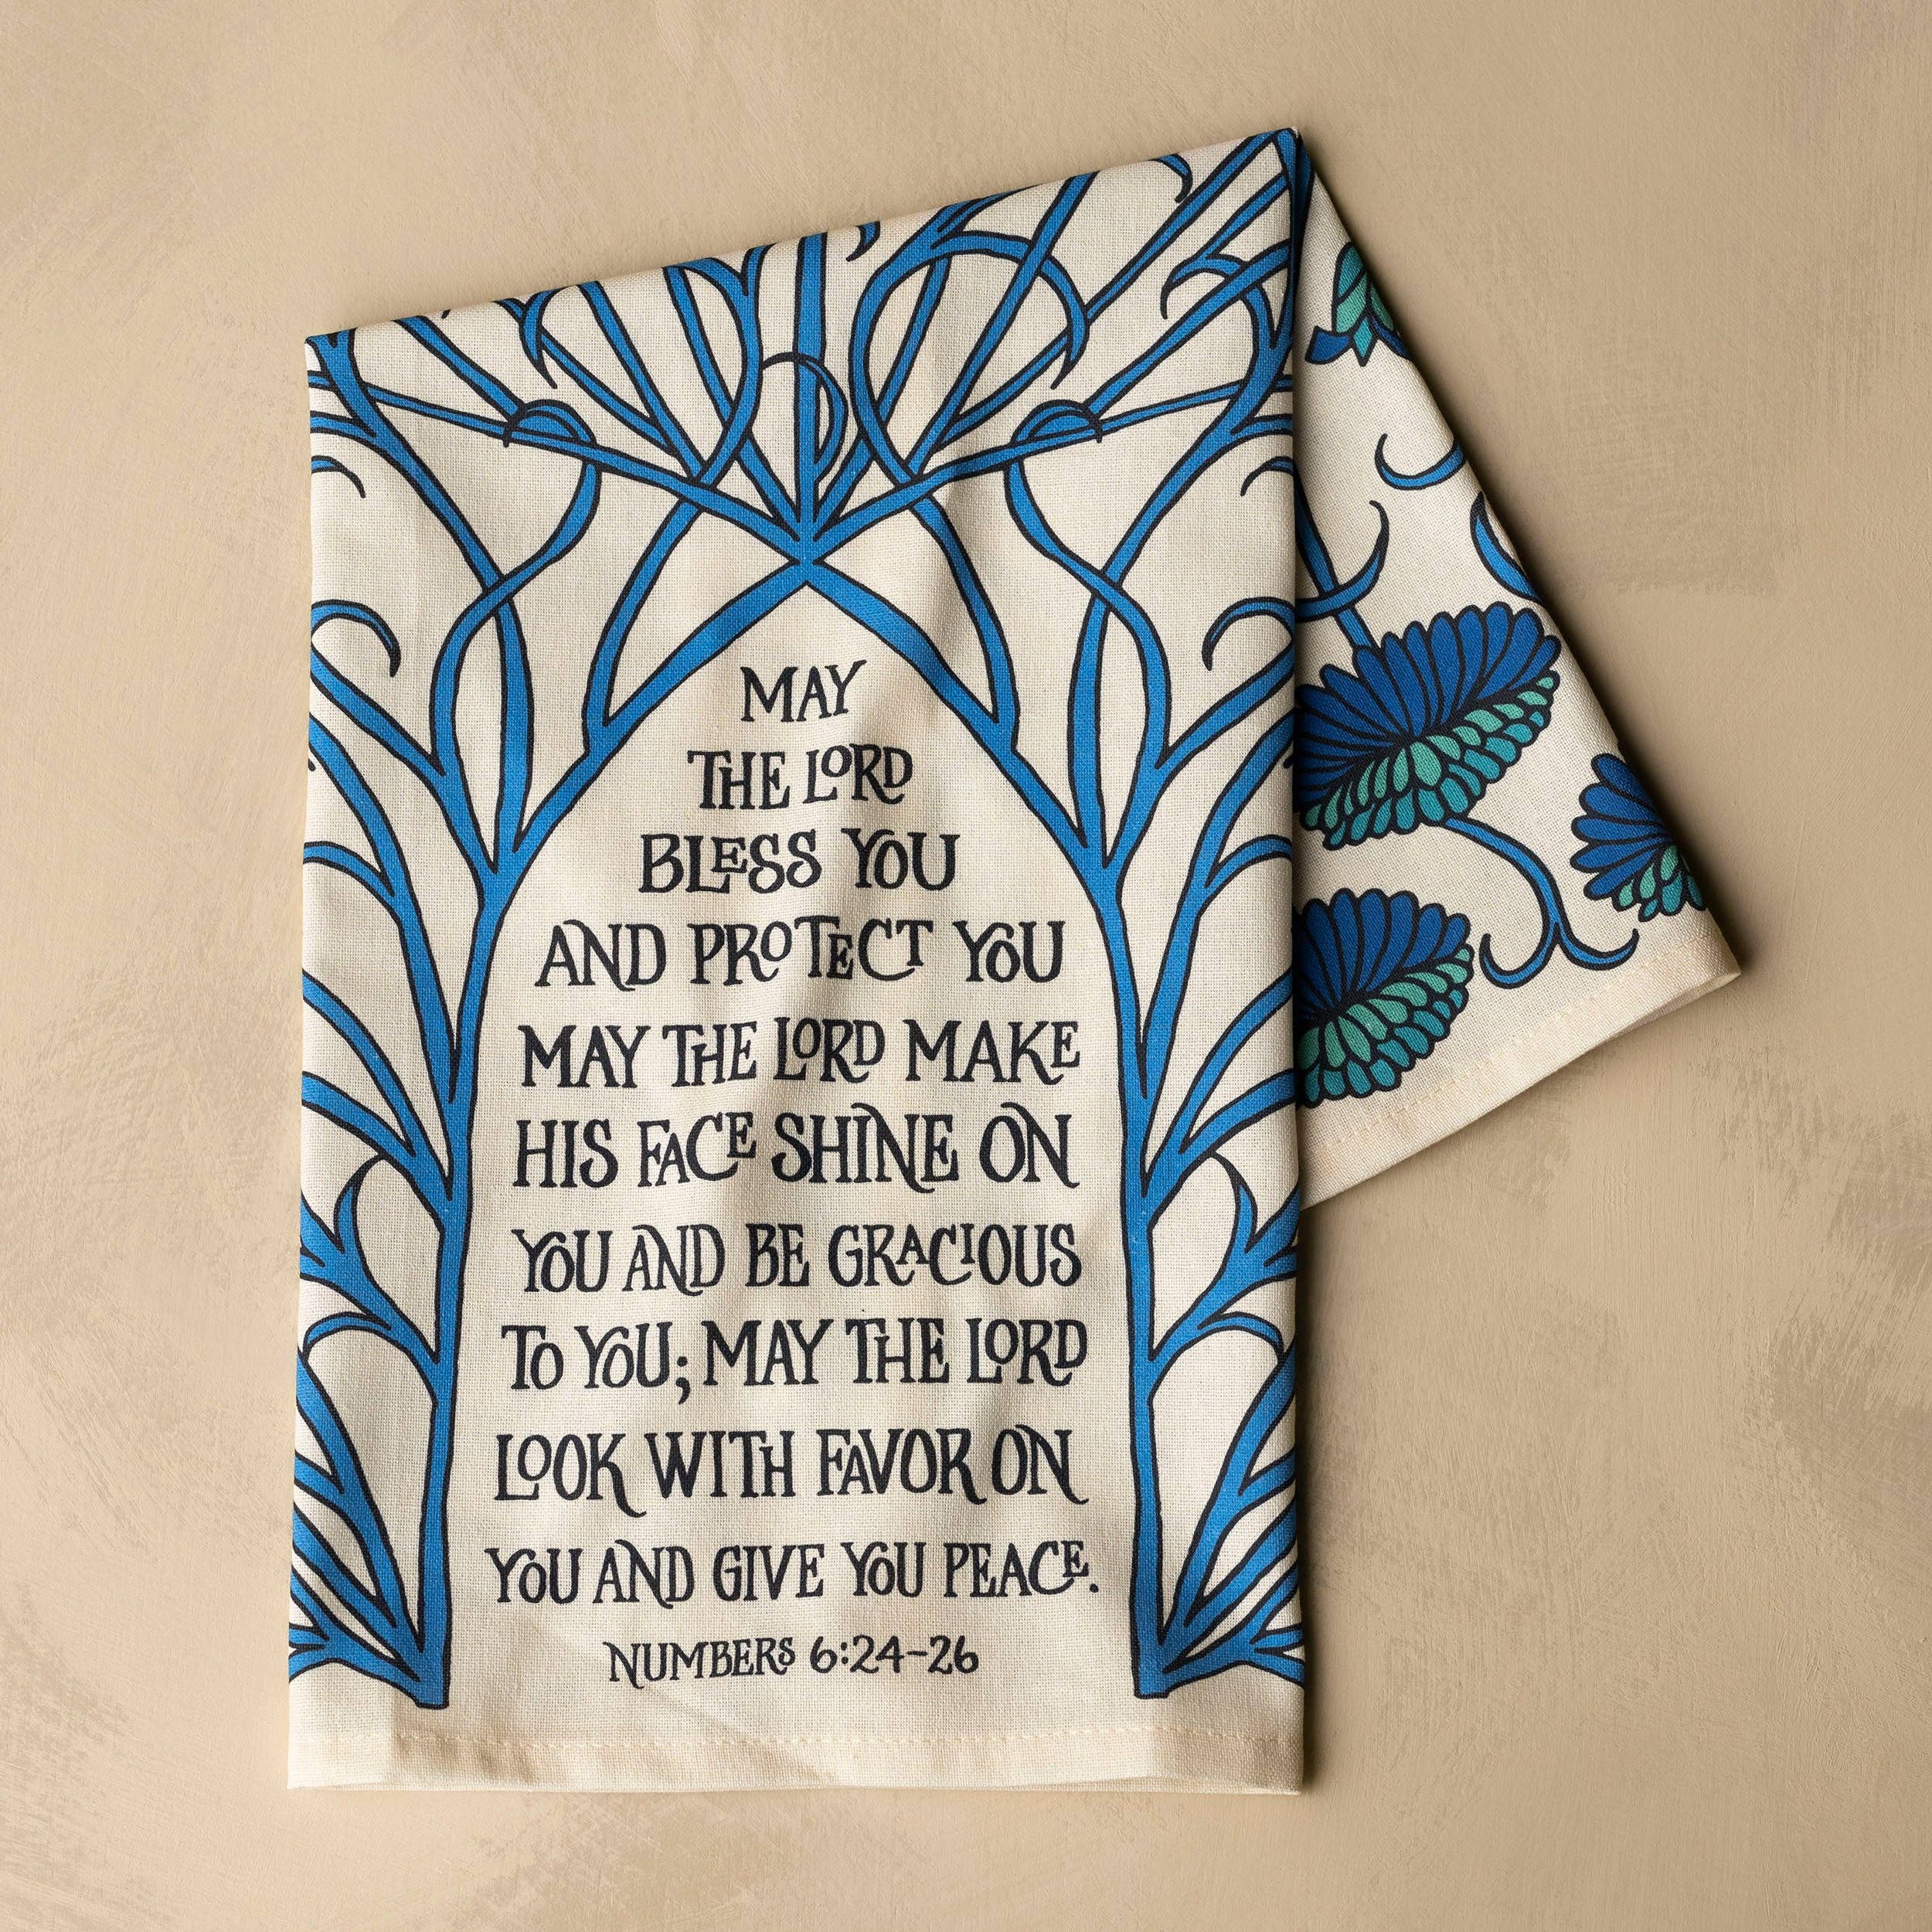 MAY
THE LORD
BLESS YOU
AND PROTECT YOU
MAY THE LORD MAKE
HIS FACE SHINE ON
YOU AND BE GRACIOUS
TO YOU; MAY THE LORD
LOOK WITH FAVOR ON
YOU AND GIVE YOU PEACE.
NUMBERS 6:24-26